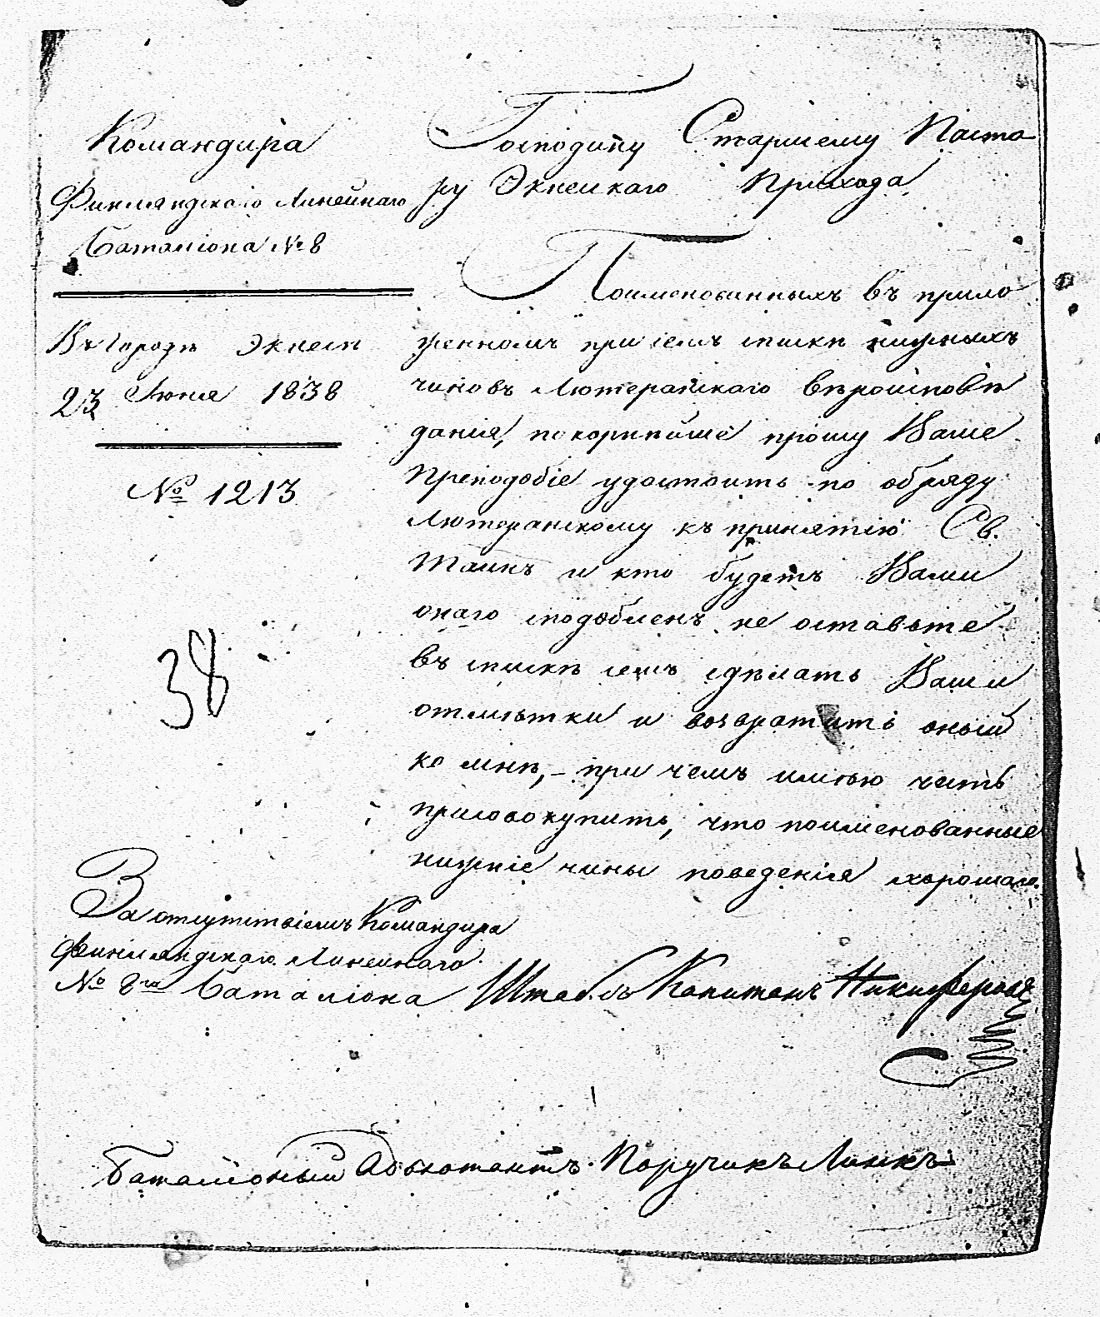 Командира
Финляндскаго Линейнаго
Баталіона № 8
Въ городѣ Экнесѣ
23 Июня 1838
№ 1213
38
Господину Старшему Пасто
ру Экнескаго Прихода
Поименованныхъ въ прило
женномъ при семъ спискѣ нижныхъ
чиновъ Лютеранскаго вѣроисповѣ
данія, покорнѣйше прошу Ваше
Преподобіе удостоить по обряду
Лютеранскому къ принятію Св.
Таинъ и кто будетъ Вами
онаго сподобленъ не оставьте
въ спискѣ семъ сдѣлать Ваши
отмѣтки и возвратить оный
ко мнѣ, – при чемъ имѣю честь
присовокупить, что поименованные
нижніе чины поведенія хорошаго.
За отсутствіемъ Командира
Финляндскаго Линейнаго
№ 8го Баталіона Штабсъ Капитанъ Никифоровъ
Баталіонный Адъютантъ Поручикъ Линкъ